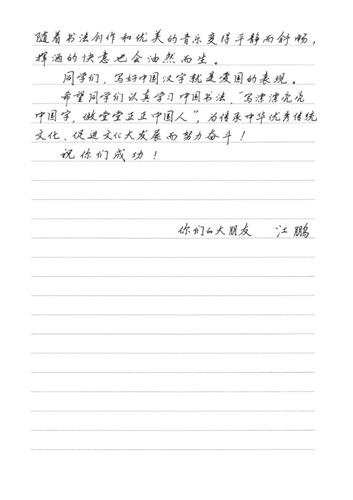 随着书法创作和优美的音乐变得平静而舒畅，
挥洒的快意也会油然而生。
同学们，写好中国汉字就是爱国的表现。
希望同学们认真学习中国书法，“写漂漂亮亮
中国字，做堂堂正正中国人”，为传承中华优秀传统
文化、促进文化大发展而努力奋斗！
祝你们成功！
你们的大朋友 江鹏